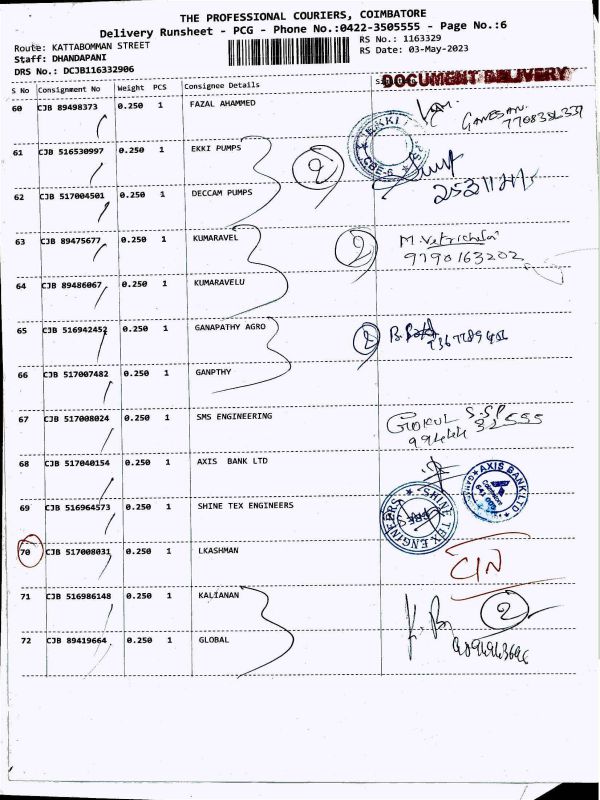 THE PROFESSIONAL COURIERS, COIMBATORE
Delivery Runsheet - PCG - Phone No.:0422-3505555 - Page No.:6
Route: KATTABOMMAN STREET RS No.: 1163329
Staff: DHANDAPANI RS Date: 03-May-2023
DRS No.: DCJB116332906
DOCUMENT DELIVERY
S No Consignment No Weight PCS Consignee Details
60 CJB 89498373 0.250 1 FAZAL AHAMMED
GANESAN
61 CJB 516530997 0.250 1 EKKI PUMPS
EKKI
CBE-6
2
62 CJB 517004501 0.250 1 DECCAM PUMPS
63 CJB 89475677 0.250 1 KUMARAVEL
2 M.
9790163202
64 CJB 89486067 0.250 1 KUMARAVELU
65 CJB 516942452 0.250 1 GANAPATHY AGRO
2
66 CJB 517007482 0.250 1 GANPTHY
67 CJB 517008024 0.250 1 SMS ENGINEERING
GOKUL S.SP
99444 32555
68 CJB 517040154 0.250 1 AXIS BANK LTD
AXIS BANK LTD
69 CJB 516964573 0.250 1 SHINE TEX ENGINEERS
SHINE TEX ENGINEERS
70 CJB 517008031 0.250 1 LKASHMAN
C/N
71 CJB 516986148 0.250 1 KALIANAN
2
72 CJB 89419664 0.250 1 GLOBAL